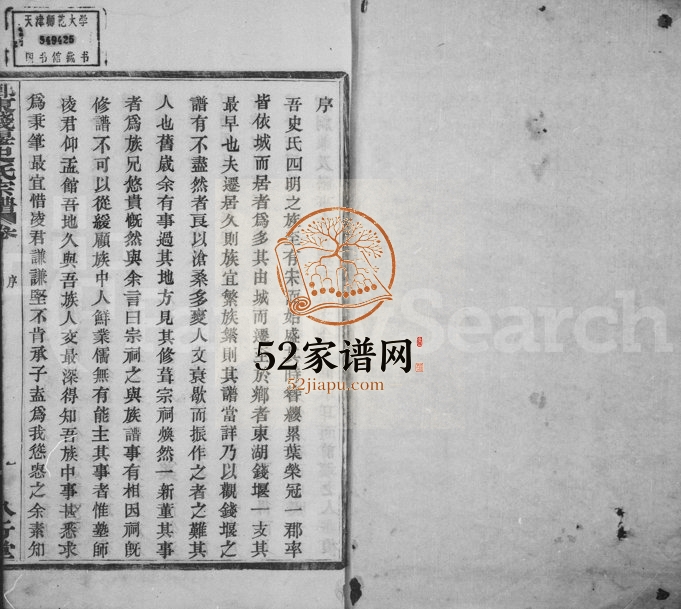 天津师范大学
549425
图书馆藏书
序
吾史氏四明之族至有宋而始盛
累葉榮冠一郡率
皆依城而居者爲多其由城而遷於鄉者東湖錢堰一支其
最早也夫遷居久則族宜繁族繁則其譜當詳乃以觀錢堰之
譜有不盡然者良以滄桑多變人文衰歇而振作之者之難其
人也舊歲余有事過其地方見其修葺宗祠煥然一新董其事
者爲族兄悠貴慨然與余言曰宗祠之與族譜事有相因祠旣
修譜不可以從緩顧族中人鮮業儒無有能主其事者惟塾師
凌君仰孟館吾地久與吾族人交最深得知吾族中事甚悉求
爲秉筆最宜惜凌君謙謙堅不肯承子盍爲我慫恿之余素知
史氏宗譜
序
一
八行堂
52家谱网
52jiapu.com
Search